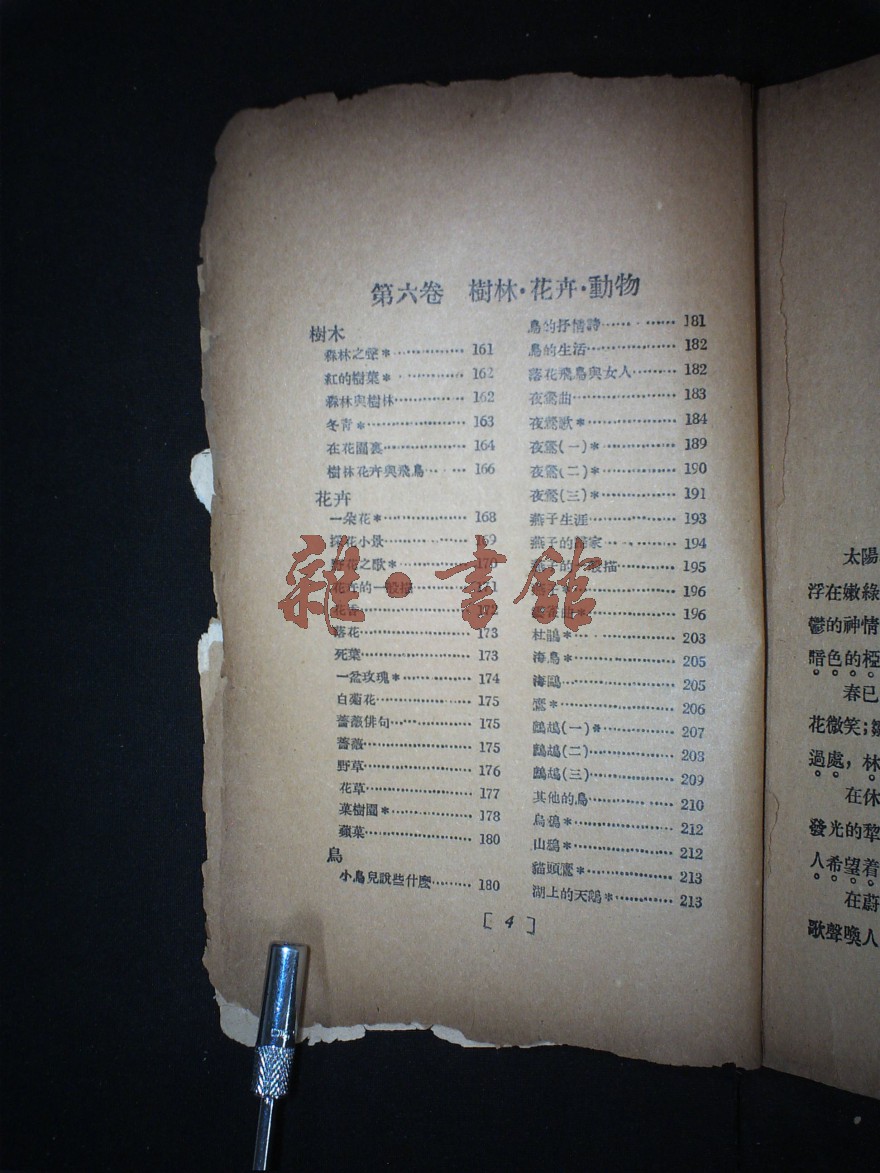 第六卷 樹林·花卉·動物
樹木
森林之聲*……………161
紅的樹葉*……………162
森林與樹林……………162
冬青*……………163
在花園裏……………164
樹林花卉與飛鳥……………166
花卉
一朵花*……………168
探花小景……………169
野花之歌*……………170
花卉的一般描……………171
花香……………172
落花……………173
死葉……………173
一盆玫瑰*……………174
白菊花……………175
薔薇俳句……………175
薔薇……………175
野草……………176
花草……………177
菓樹園*……………178
蘋菓……………180
鳥
小鳥兒說些什麼……………180
鳥的抒情詩……………181
鳥的生活……………182
落花飛鳥與女人……………182
夜鶯曲……………183
夜鶯歌*……………184
夜鶯(一)*……………189
夜鶯(二)*……………190
夜鶯(三)*……………191
燕子生涯……………193
燕子的 家……………194
燕子的一般描……………195
燕子*……………196
雲雀曲*……………196
杜鵑*……………203
海鳥*……………205
海鷗……………205
鷹*……………206
鷓鴣(一)*……………207
鷓鴣(二)……………208
鷓鴣(三)……………209
其他的鳥……………210
烏鴉*……………212
山鴉*……………212
貓頭鷹*……………213
湖上的天鵝*……………213
[4]
雜·書館
太陽
浮在嫩綠
鬱的神情
暗色的椏
春已
花微笑;
過處,林
在休
發光的犂
人希望着
在蔚
歌聲喚人